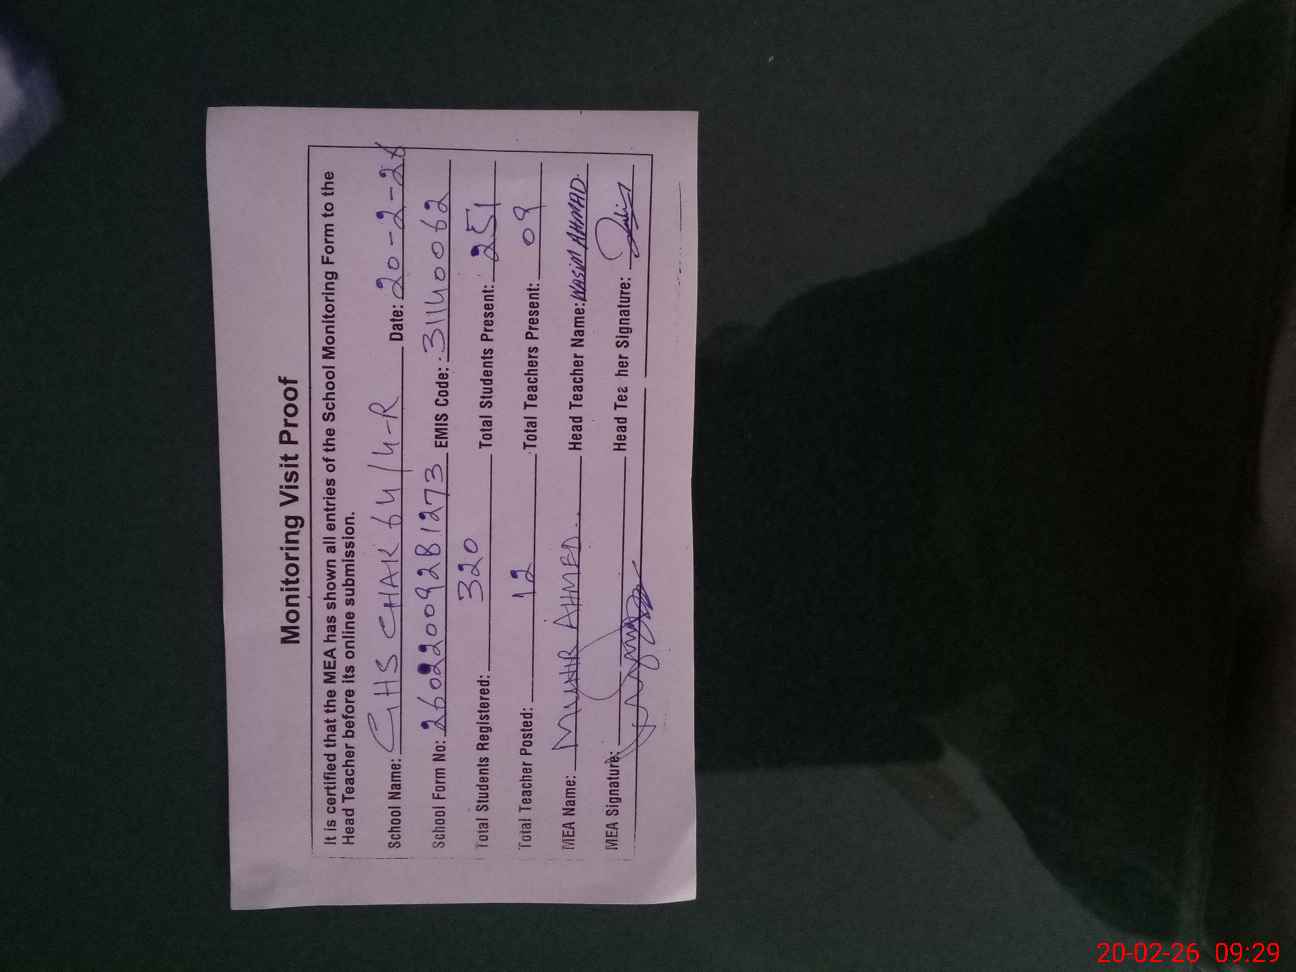 Monitoring Visit Proof
It is certified that the MEA has shown all entries of the School Monitoring Form to the
Head Teacher before its online submission.
School Name: GHS CHAK 64/4-R Date: 20-2-26
School Form No: 260220092B1273 EMIS Code: 31140062
Total Students Registered: 320 Total Students Present: 251
Total Teacher Posted: 12 Total Teachers Present: 09
MEA Name: AHMED Head Teacher Name: WASIM AHMAD
MEA Signature: Head Teacher Signature:
20-02-26 09:29